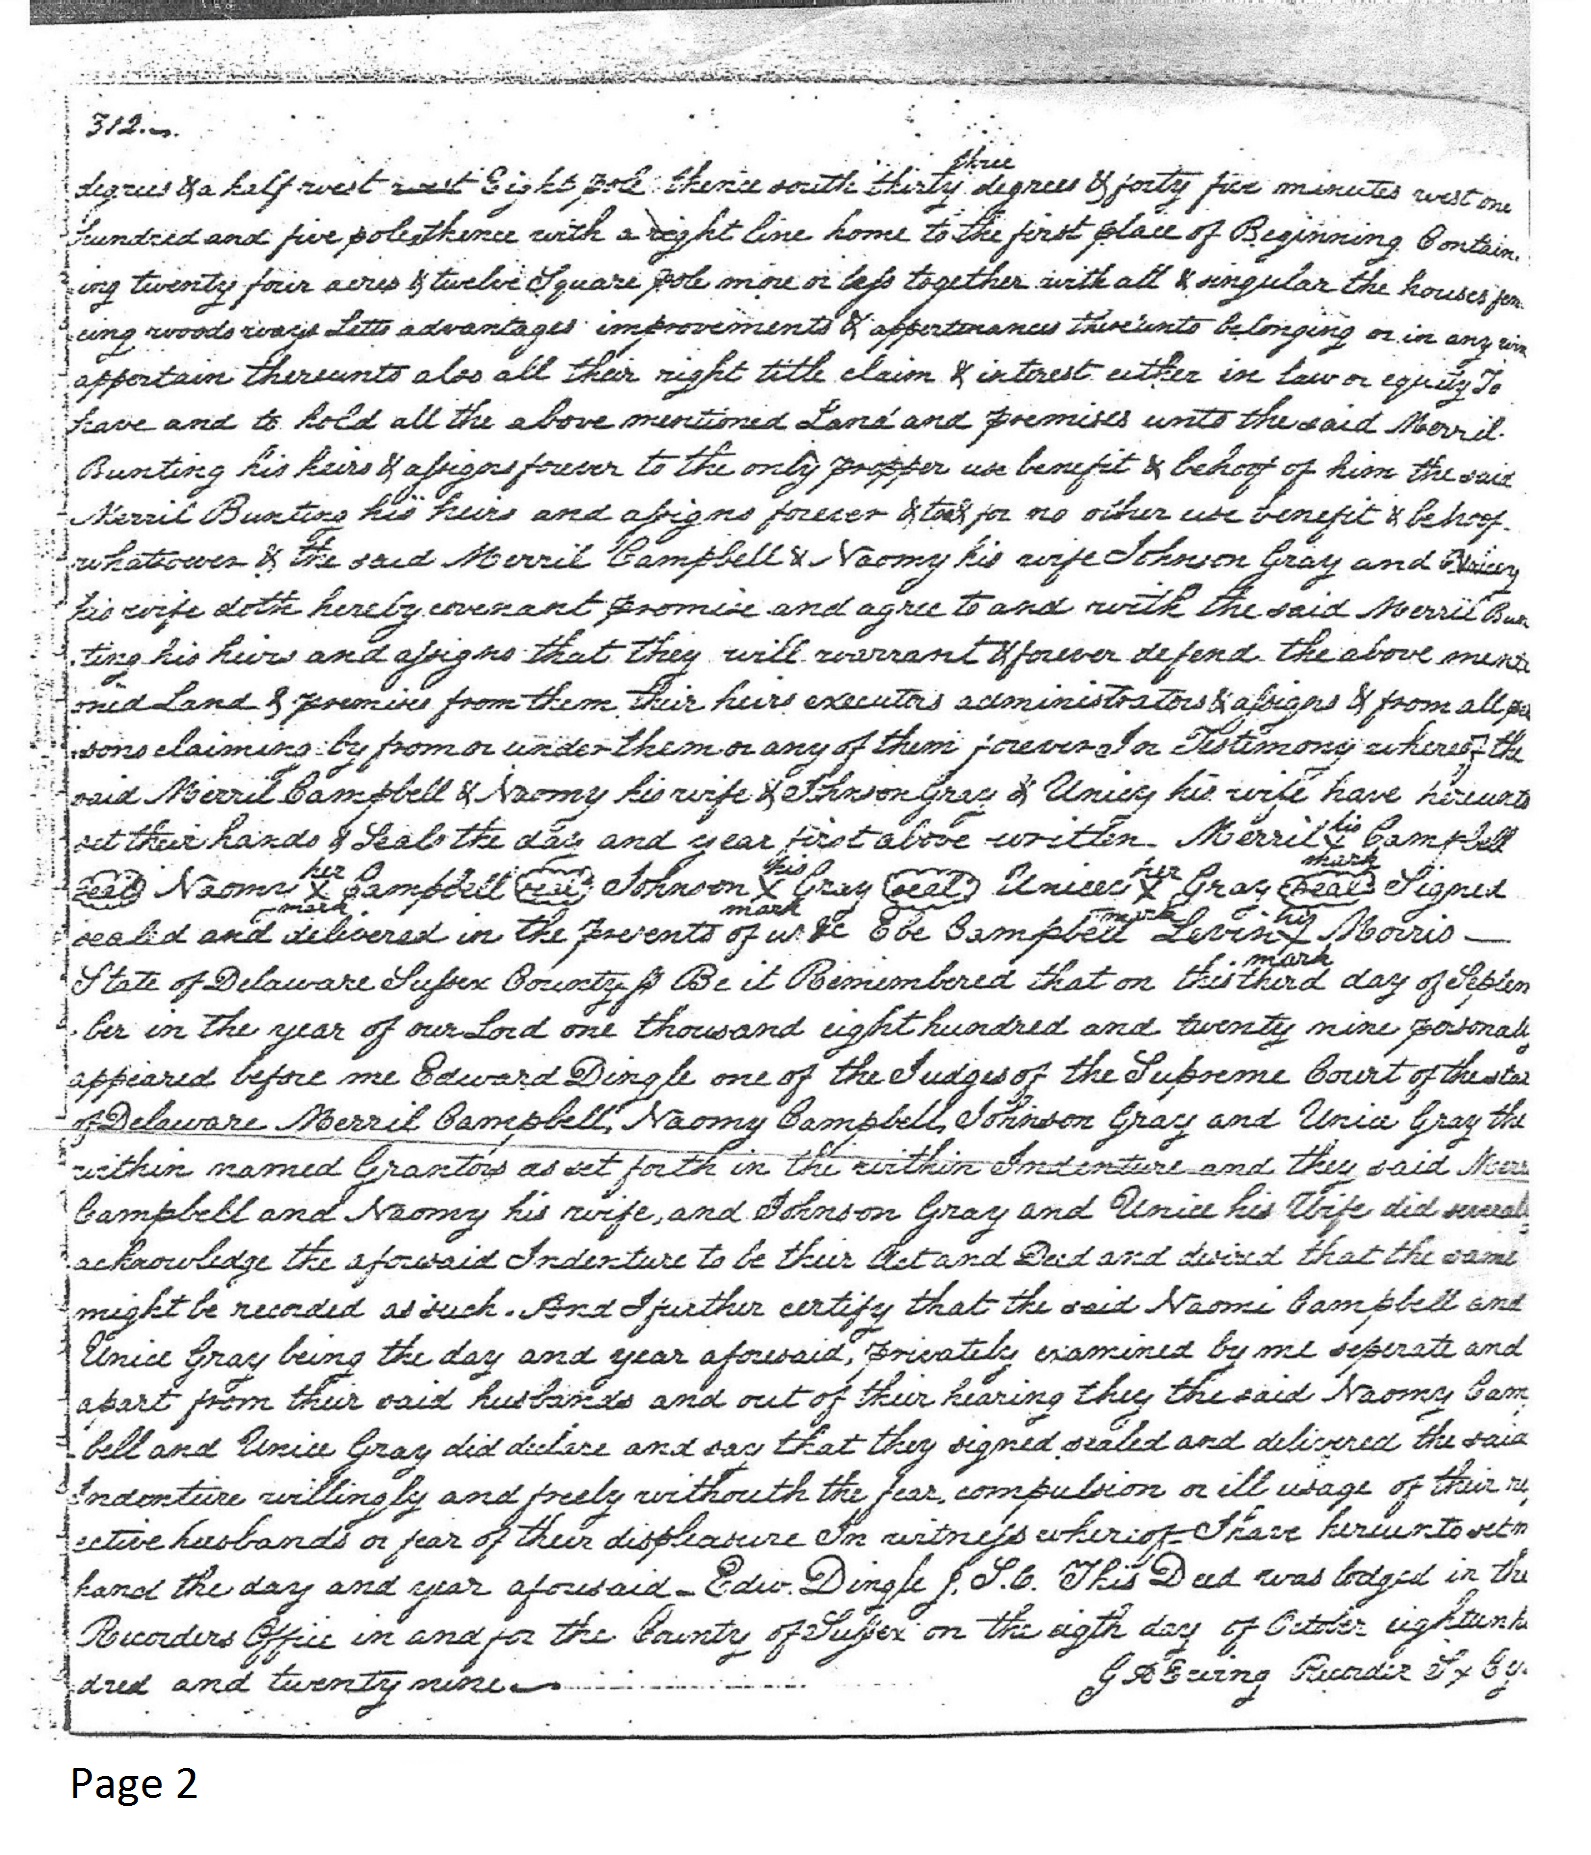 312.
degrees & a half west west Eight pole thence south thirty three degrees & forty five minutes west one
hundred and five poles, thence with a right line home to the first place of Beginning Contain-
ing twenty four acres & twelve Square pole more or less together with all & singular the houses fen
cing woods ways Letts advantages improvements & appertinances thereunto belonging or in any wise
appertain thereunto also all their right title claim & interest either in law or equity To
have and to hold all the above mentioned Land and premises unto the said Merril
Bunting his heirs & assigns forever to the only propper use benefit & behoof of him the said
Merril Bunting his heirs and assigns forever & to & for no other use benefit & behoof
whatsoever & the said Merril Campbell & Naomy his wife Johnson Gray and
his wife doth hereby covenant promise and agree to and with the said Merril Bun
ting his heirs and assigns that they will warrant & forever defend the above menti
oned Land & premises from them their heirs executors administrators & assigns & from all per
sons claiming by from or under them or any of them forever In Testimony whereof the
said Merril Campbell & Naomy his wife & Johnson Gray & Unicy his wife have hereunto
set their hands & Seals the day and year first above written Merril his X mark Campbell
seal Naomi her X mark Campbell seal Johnson his X mark Gray seal Unicey her X mark Gray seal Signed
sealed and delivered in the presents of us &c Ebe Campbell Levin his X mark Morris —
State of Delaware Sussex County ss Be it Remembered that on this third day of Septem
ber in the year of our Lord one thousand eight hundred and twenty nine personally
appeared before me Edward Dingle one of the Judges of the Supreme Court of the state
of Delaware Merril Campbell, Naomy Campbell, Johnson Gray and Unice Gray the
within named Grantors as set forth in the within Indenture and they said Merril
Campbell and Naomy his wife, and Johnson Gray and Unice his Wife did severally
acknowledge the aforesaid Indenture to be their Act and Deed and desired that the same
might be recorded as such. And I further certify that the said Naomi Campbell and
Unice Gray being the day and year aforesaid, privately examined by me seperate and
apart from their said husbands and out of their hearing they the said Naomy Camp
bell and Unice Gray did declare and say that they signed sealed and delivered the said
Indenture willingly and freely withouth the fear, compulsion or ill usage of their
ective husbands or fear of their displeasure In witness whereof I have hereunto set m
hand the day and year aforesaid — Edw. Dingle J. S. C. This Deed was lodged in the
Recorders Office in and for the County of Sussex on the eigth day of October eighteen h
dred and twenty nine
G A Ewing Recorder Sx Cy.
Page 2